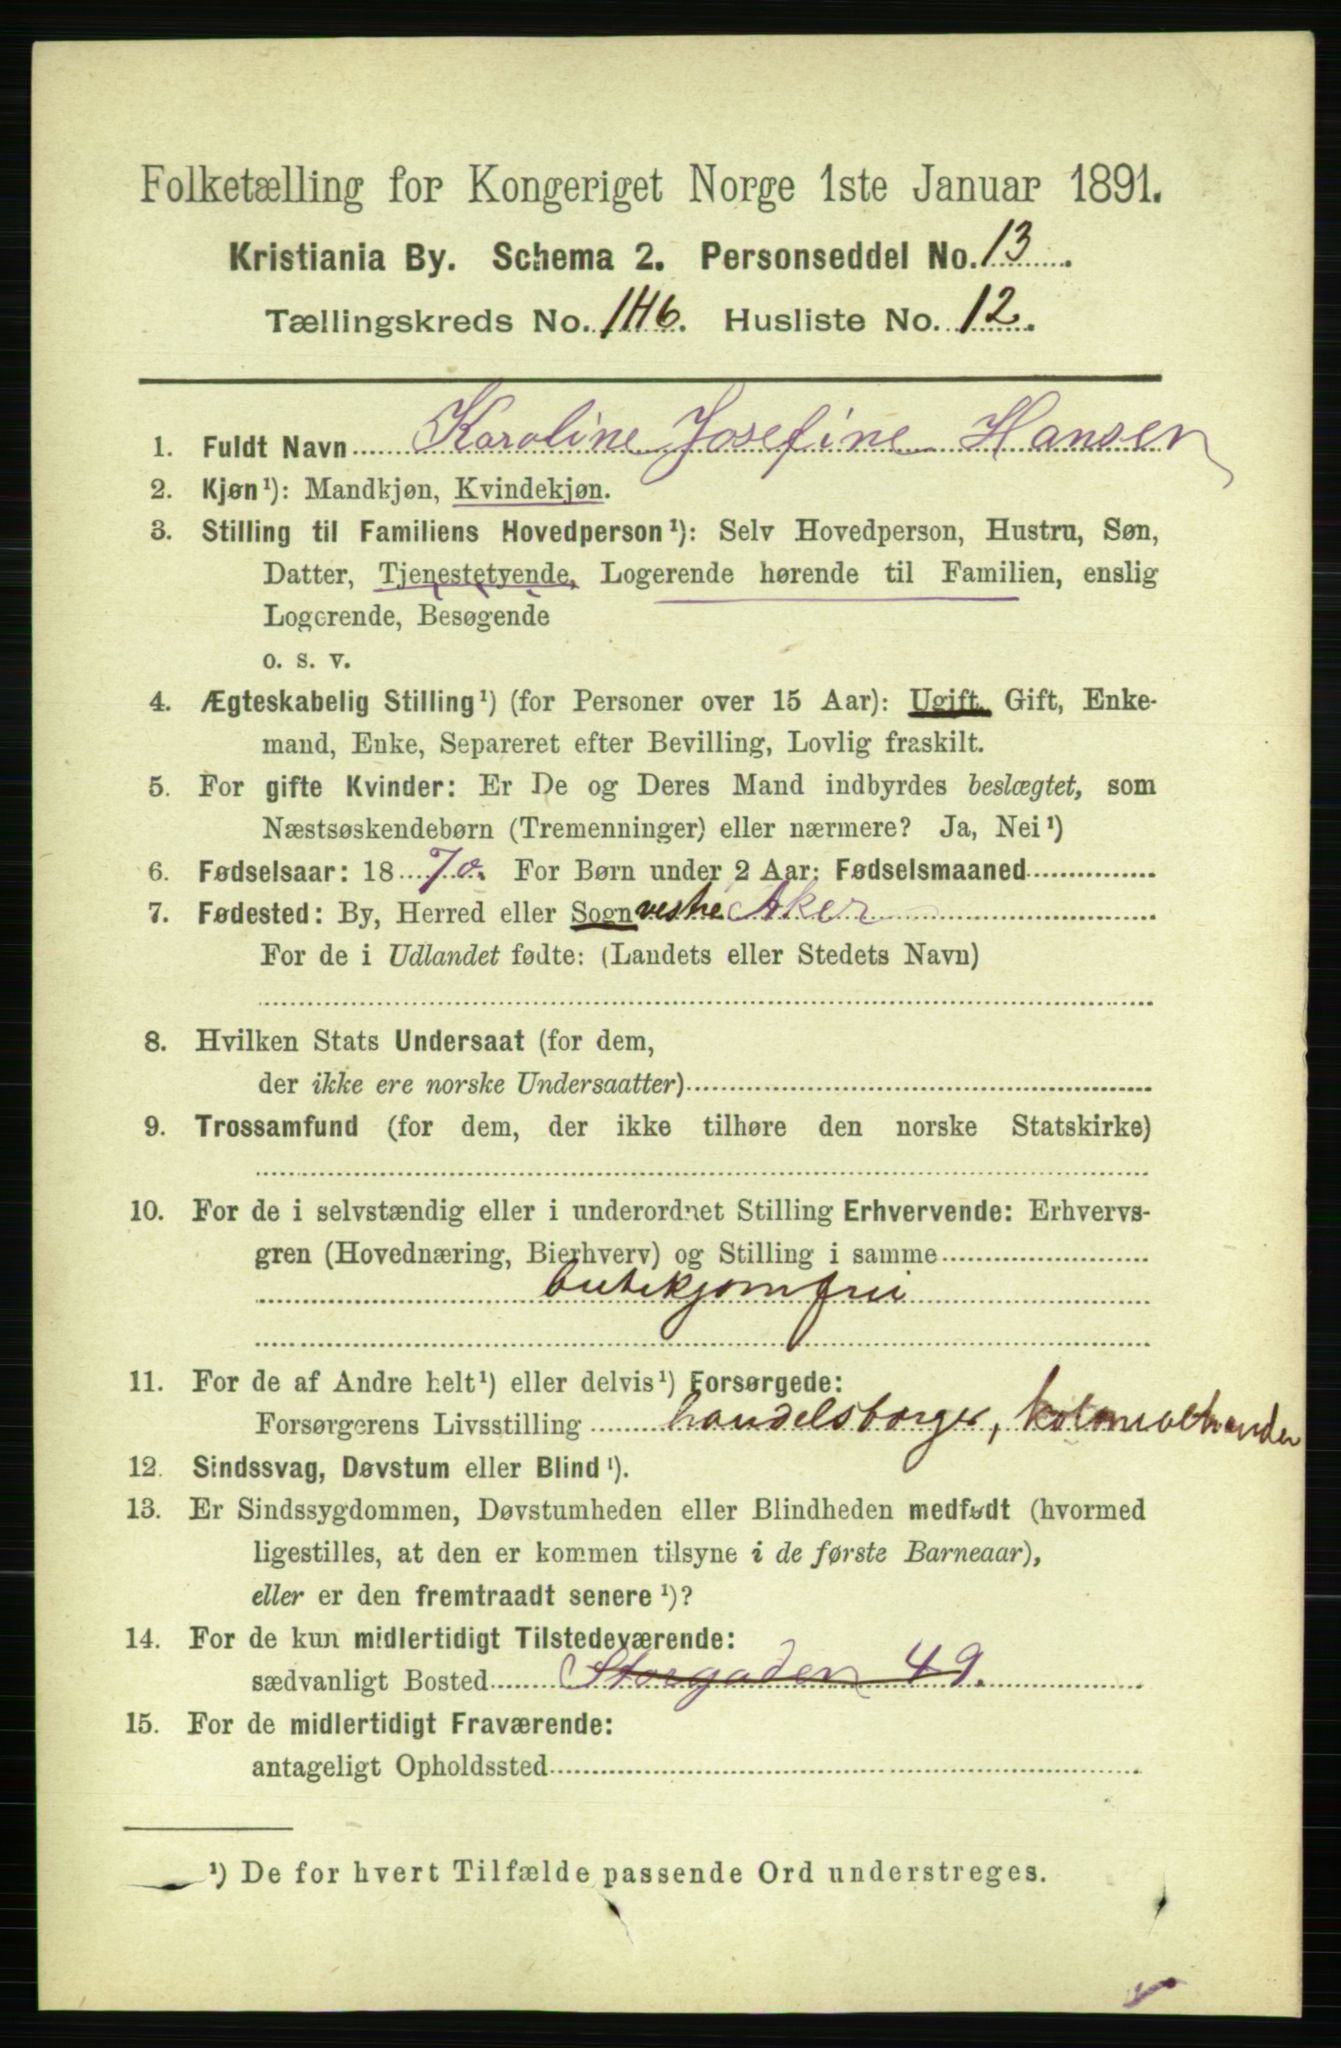 Folketælling for Kongeriget Norge 1ste Januar 1891.
Kristiania By. Schema 2. Personseddel No. 13.
Tællingskreds No. 146. Husliste No. 12.
1. Fuldt Navn Karoline Josefine Hansen
2. Kjøn¹): Mandkjøn, Kvindekjøn.
3. Stilling til Familiens Hovedperson¹): Selv Hovedperson, Hustru, Søn,
Datter, Tjenestetyende, Logerende hørende til Familien, enslig
Logerende, Besøgende
o. s. v.
4. Ægteskabelig Stilling¹) (for Personer over 15 Aar): Ugift, Gift, Enke-
mand, Enke, Separeret efter Bevilling, Lovlig fraskilt.
5. For gifte Kvinder: Er De og Deres Mand indbyrdes beslægtet, som
Næstsøskendebørn (Tremenninger) eller nærmere? Ja, Nei¹)
6. Fødselsaar: 1870. For Børn under 2 Aar: Fødselsmaaned
7. Fødested: By, Herred eller Sogn vestre Aker
For de i Udlandet fødte: (Landets eller Stedets Navn)
8. Hvilken Stats Undersaat (for dem,
der ikke ere norske Undersaatter)
9. Trossamfund (for dem, der ikke tilhøre den norske Statskirke)
10. For de i selvstændig eller i underordnet Stilling Erhvervende: Erhvervs-
gren (Hovednæring, Bierhverv) og Stilling i samme
butikjomfru
11. For de af Andre helt¹) eller delvis¹) Forsørgede:
Forsørgerens Livsstilling handelsborger, kolonialhandler
12. Sindssvag, Døvstum eller Blind¹).
13. Er Sindssygdommen, Døvstumheden eller Blindheden medfødt (hvormed
ligestilles, at den er kommen tilsyne i de første Barneaar),
eller er den fremtraadt senere¹)?
14. For de kun midlertidigt Tilstedeværende:
sædvanligt Bosted Storgaden 49.
15. For de midlertidigt Fraværende:
antageligt Opholdssted
¹) De for hvert Tilfælde passende Ord understreges.